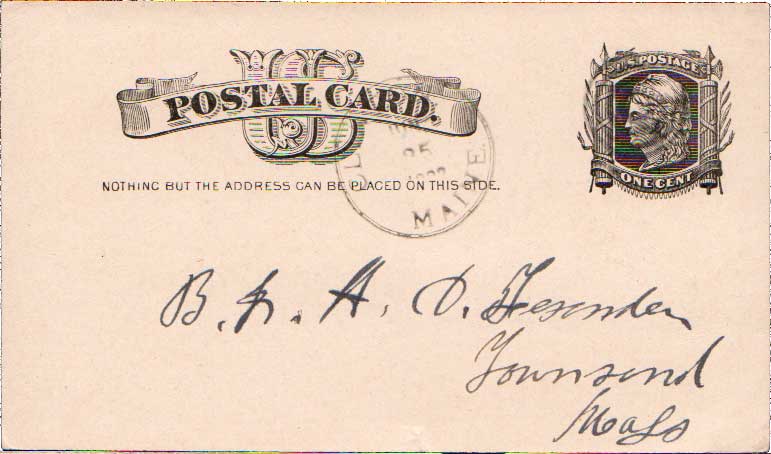 U.S. POSTAGE
US
POSTAL CARD.
25
MAINE.
NOTHING BUT THE ADDRESS CAN BE PLACED ON THIS SIDE.
ONE CENT
A. D. Fesenden
Townsend
Mass